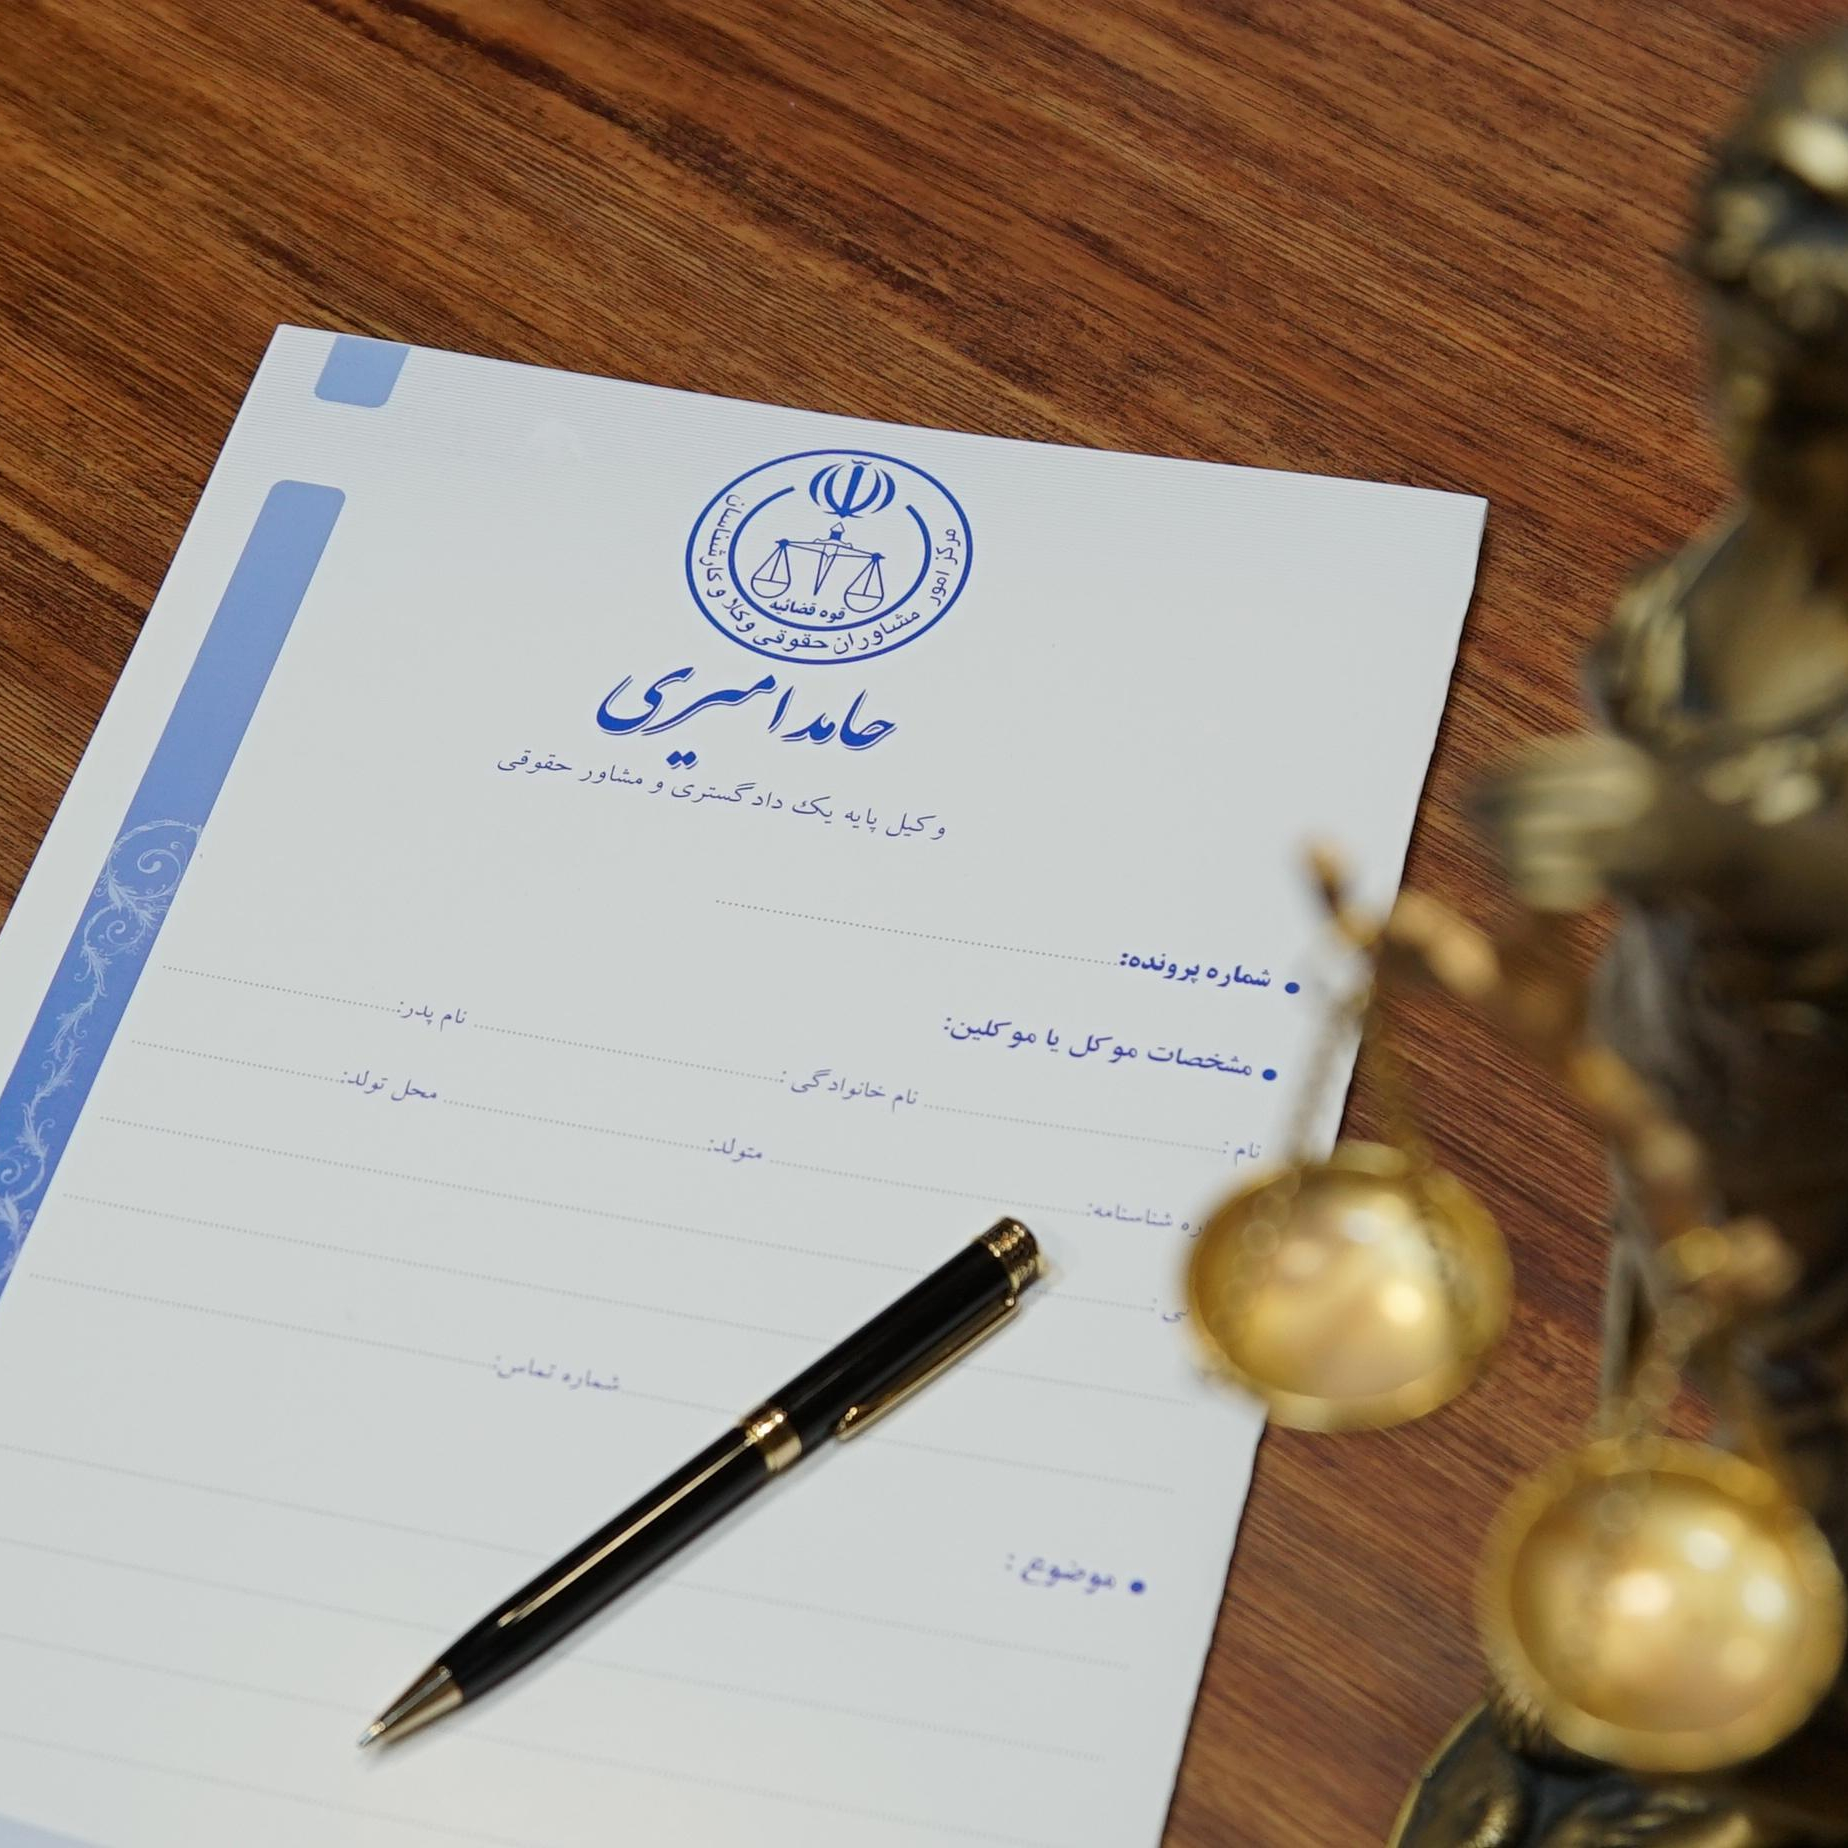 مرکز امور مشاوران حقوقی وکلا و کارشناسان
قوه قضائیه
حامد امیری
وکیل پایه یک دادگستری و مشاور حقوقی
• شماره پرونده:
• مشخصات موکل یا موکلین:
نام : نام خانوادگی : نام پدر:
شناسنامه: متولد: محل تولد:
شماره تماس:
• موضوع :